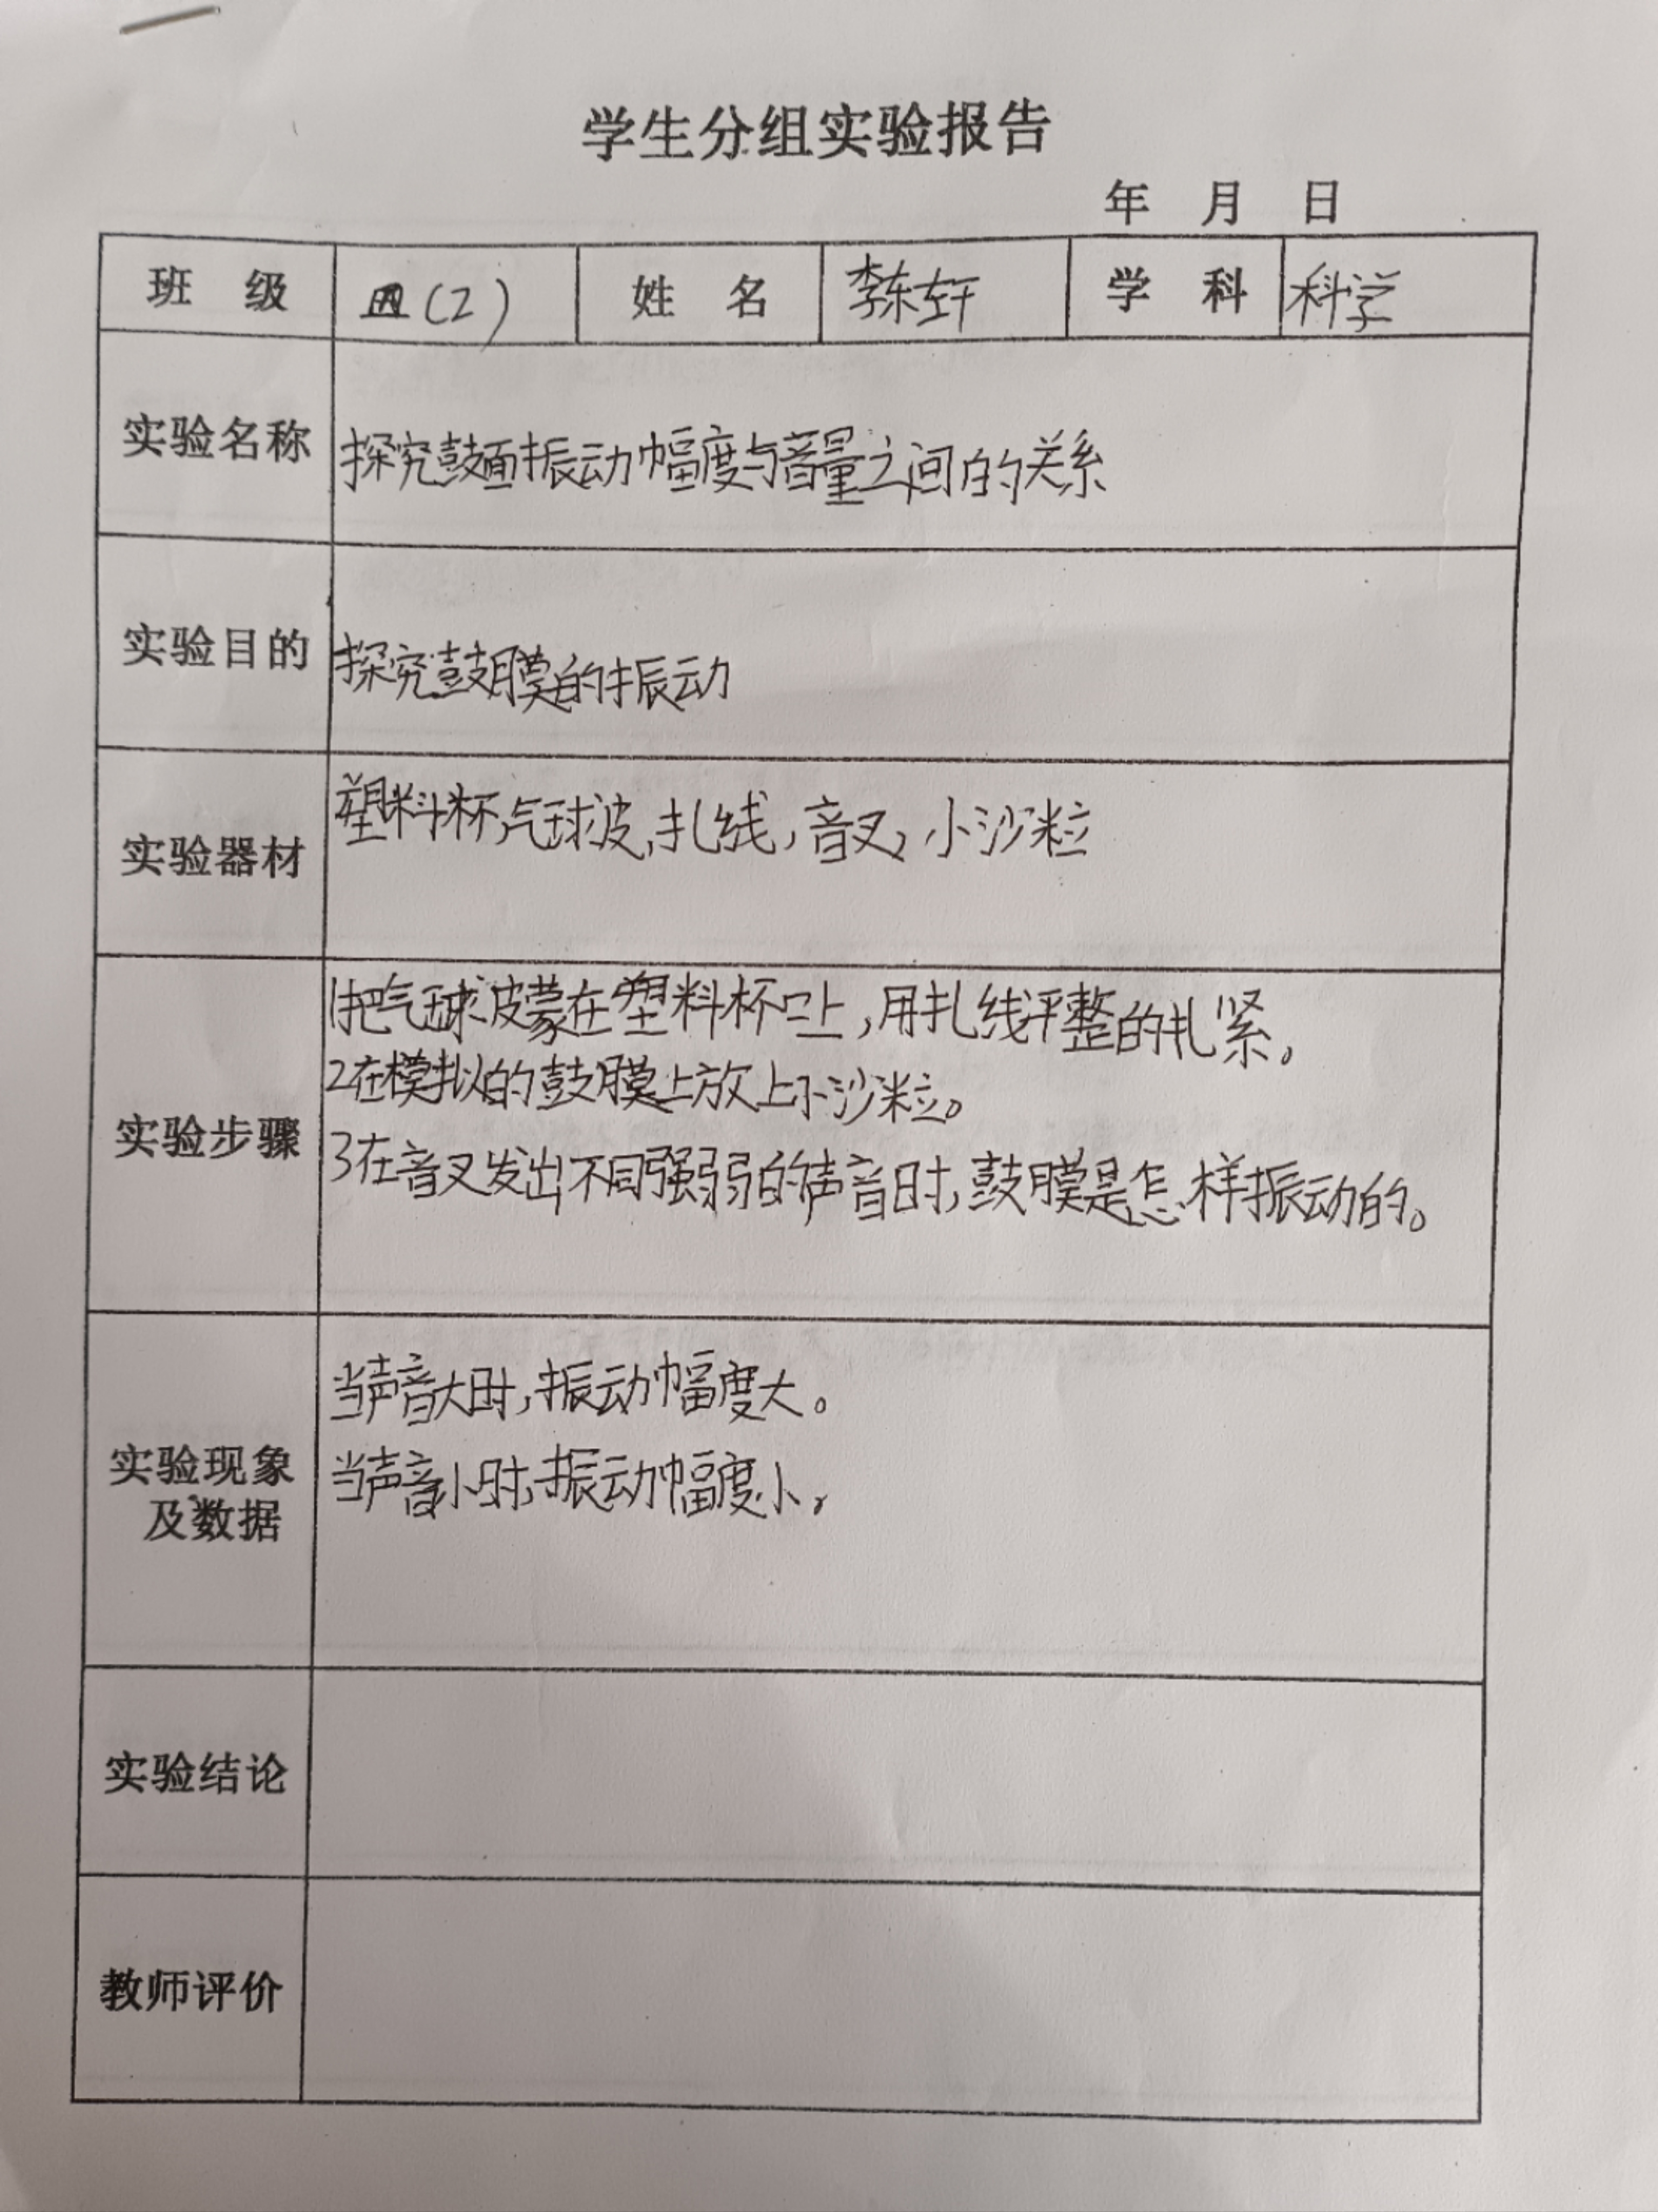 学生分组实验报告
年 月 日
班 级 四(2) 姓 名 李东轩 学 科 科学
实验名称 探究鼓面振动幅度与音量之间的关系
实验目的 探究鼓膜的振动
实验器材 塑料杯,气球波,扎线,音叉,小沙粒
实验步骤
1把气球皮蒙在塑料杯口上,用扎线平整的扎紧。
2在模拟的鼓膜上放上小沙粒。
3在音叉发出不同强弱的声音时,鼓膜是怎样振动的。
实验现象
及数据
当声音大时,振动幅度大。
当声音小时,振动幅度小。
实验结论
教师评价